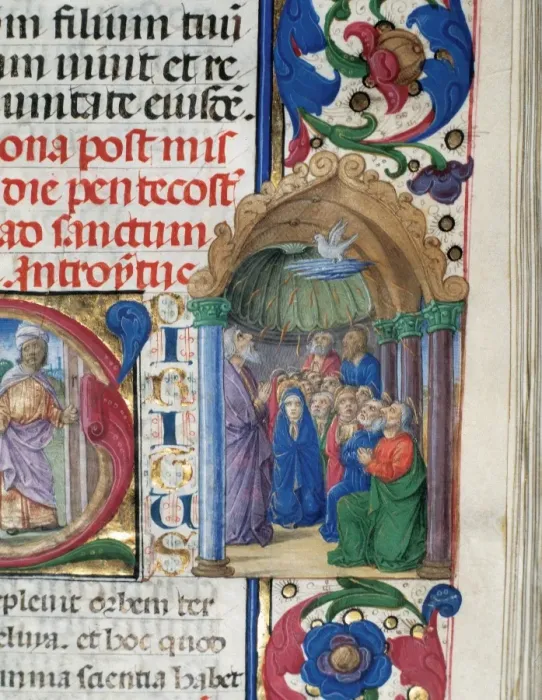 m filium tuū
m uiuit et re
unitate eiusdē.
ona post mis
die pentecost
ad sanctum
. Introytus
S
P
I
R
I
T
U
S
pleuit orbem ter
eluya. et hoc quod
mnia scientia habet